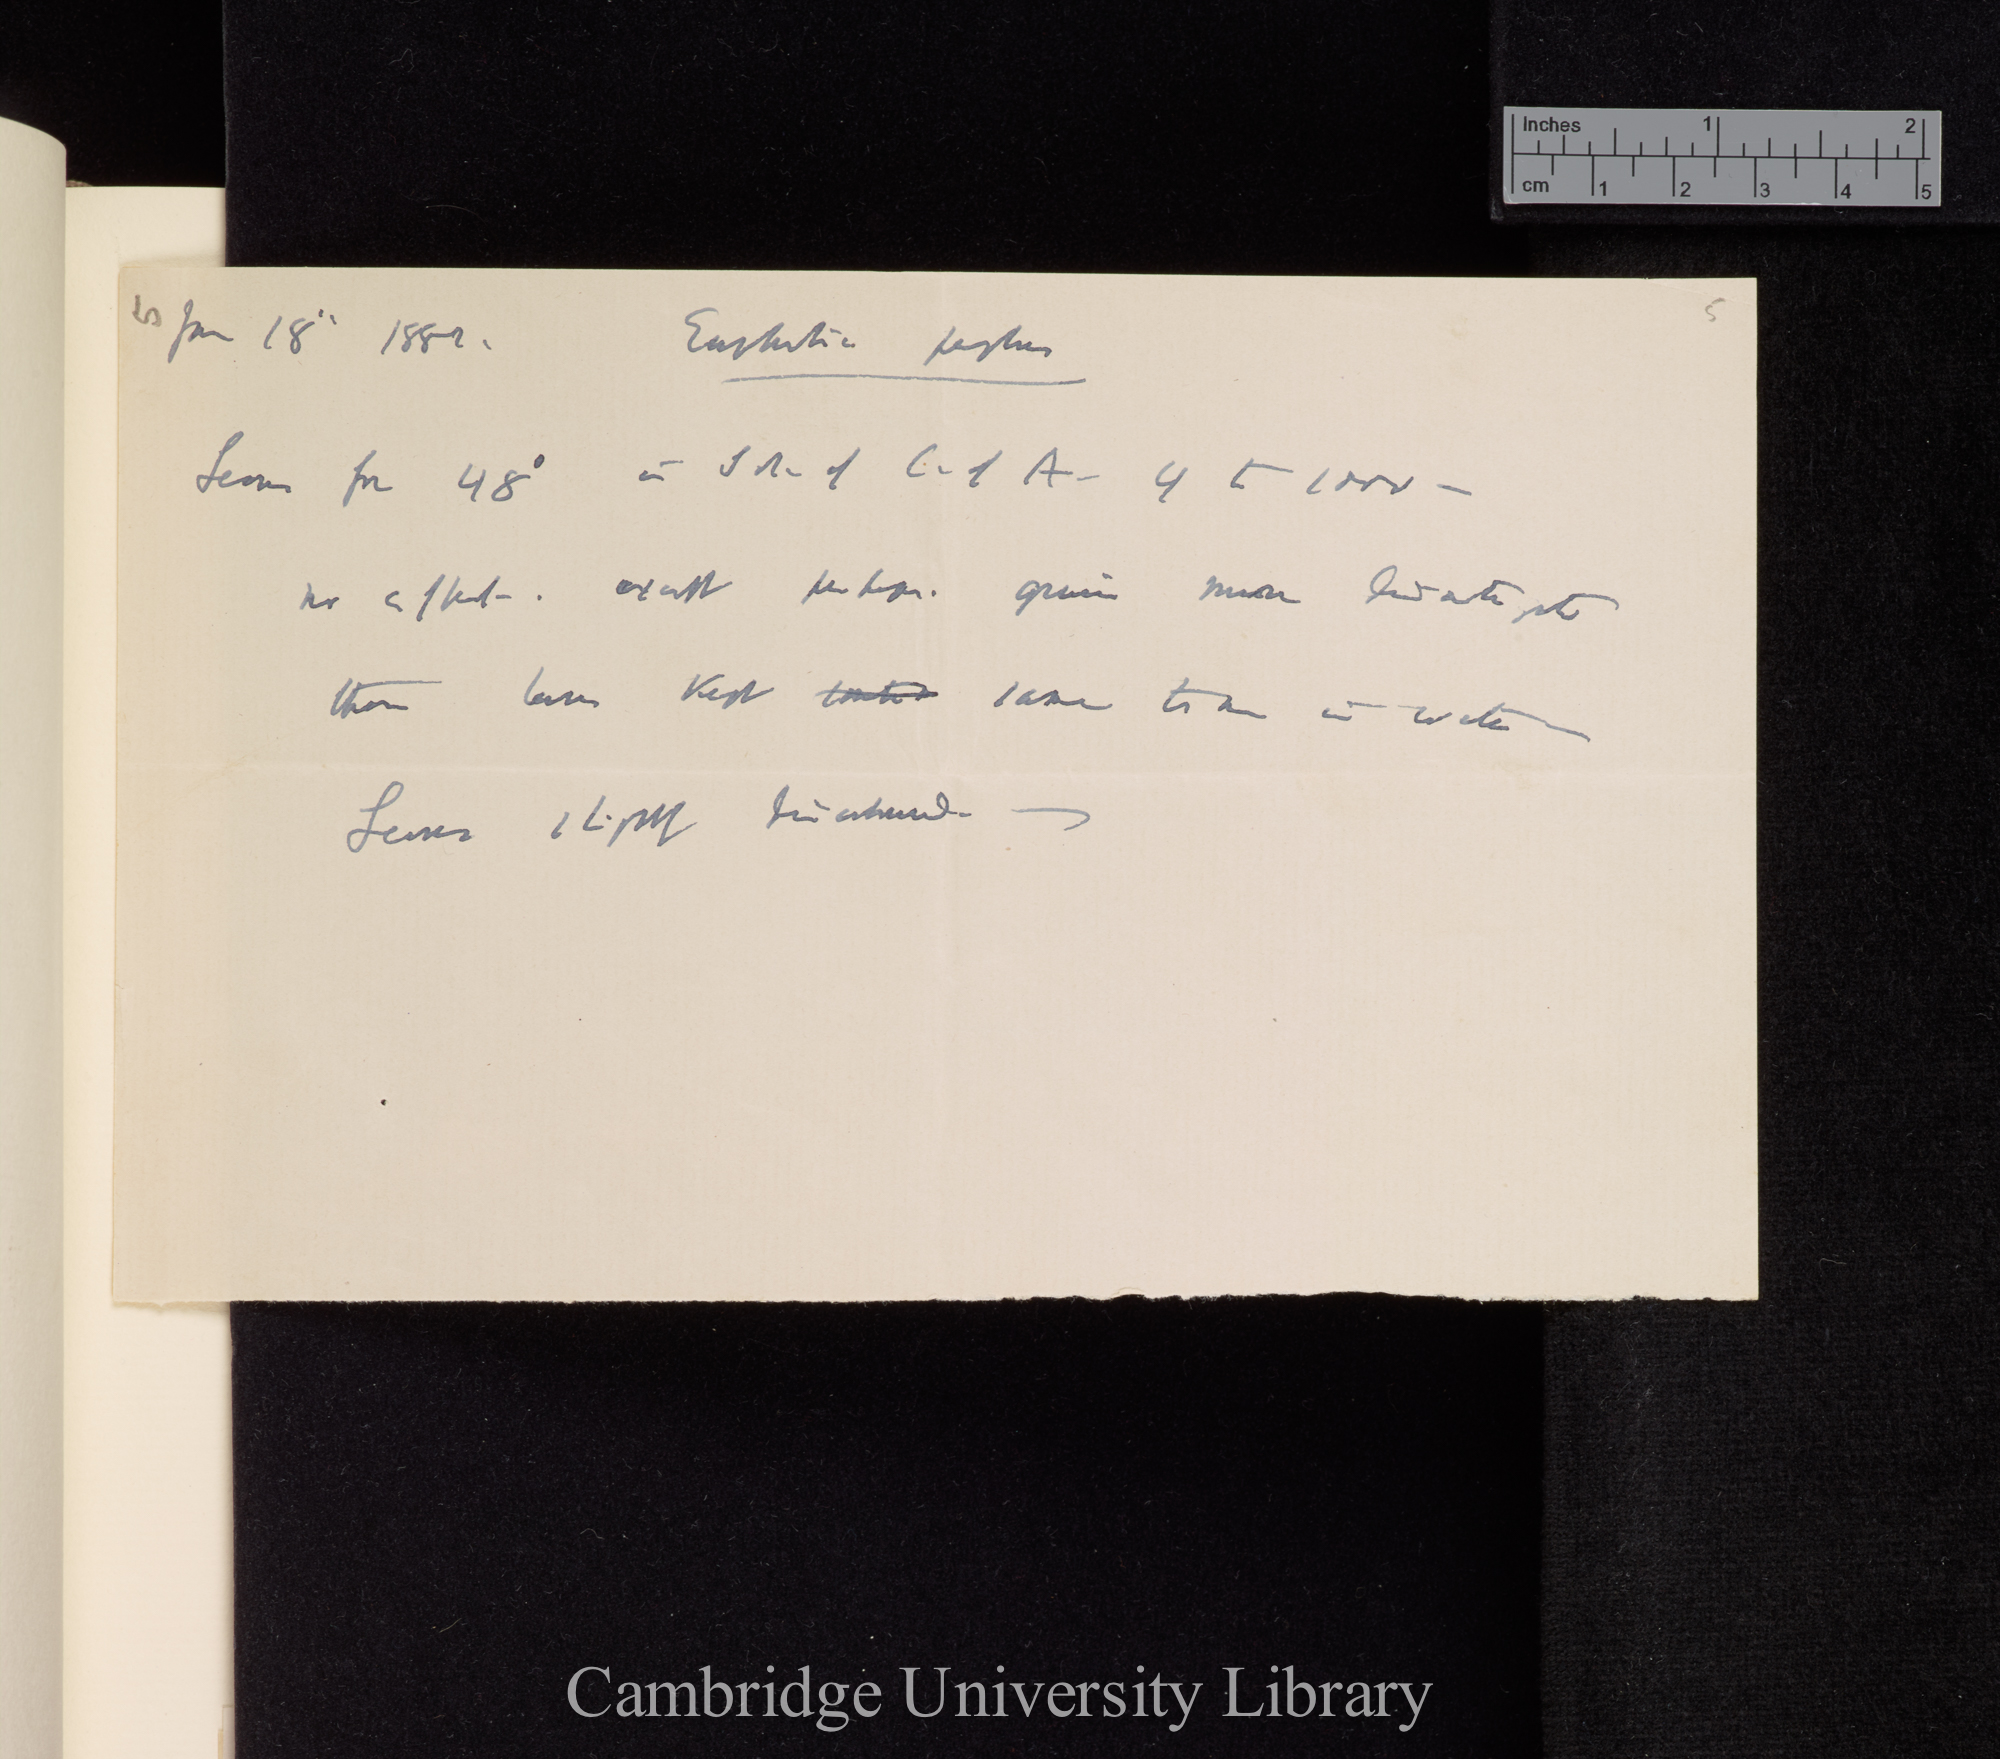 Inches 1 2
cm 1 2 3 4 5
5 Jan 18th 1882. Euphorbia peplus 5
Leaves for 48° in Sol. of C. of A. 4 to 1000 —
no effect. except perhaps. grains more
than leaves kept same time in water
Leaves slightly
Cambridge University Library